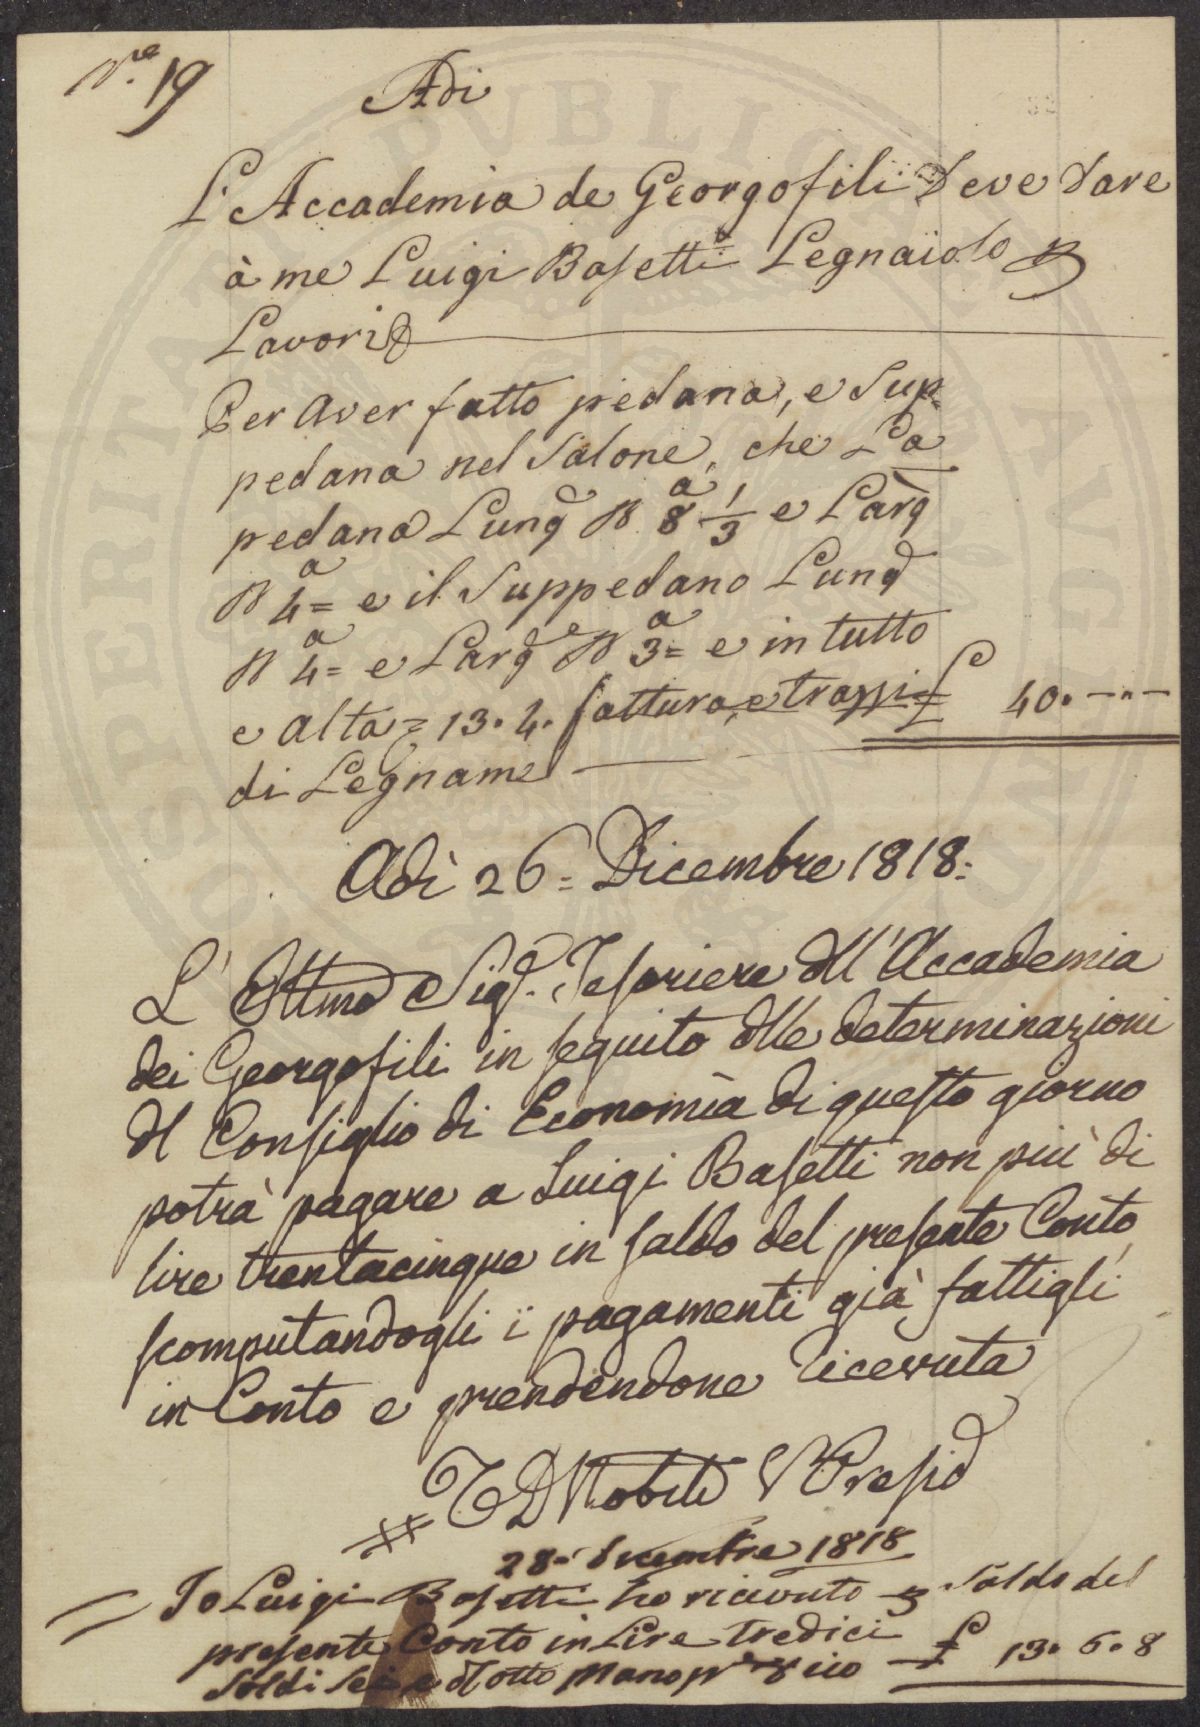 N.ro 19
Adi
L'Accademia de Georgofili Deve Dare
à me Luigi Basetti Legnaiolo p
Lavori
Per Aver fatto pedana, e Sup-
pedana nel Salone, che La
pedana Lung B.a 8 1/3 e Larg
B.a 4= e il Suppedano Lung
B.a 4= e Larg B.a 3= e in tutto
e alta = 13. 4. fattura, e trazzi £ 40. -.-
di Legname
Adì 26= Dicembre 1818=
L' Ill.mo Sig.r Tesoriere dell'Accademia
dei Georgofili in seguito delle determinazioni
del Consiglio di Economia di questo giorno
potrà pagare a Luigi Basetti non più di
lire trentacinque in saldo del presente Conto
scomputandogli i pagamenti già fattigli
in Conto e prendendone ricevuta
Nobili V Presid
28= Dicembre 1818
= Io Luigi Basetti ho ricevuto p Saldo del
presente Conto in Lire tredici
Soldi sei e d otto Mano pr £ 13. 6. 8
PROSPERITATI PVBLICAE AVGENDAE